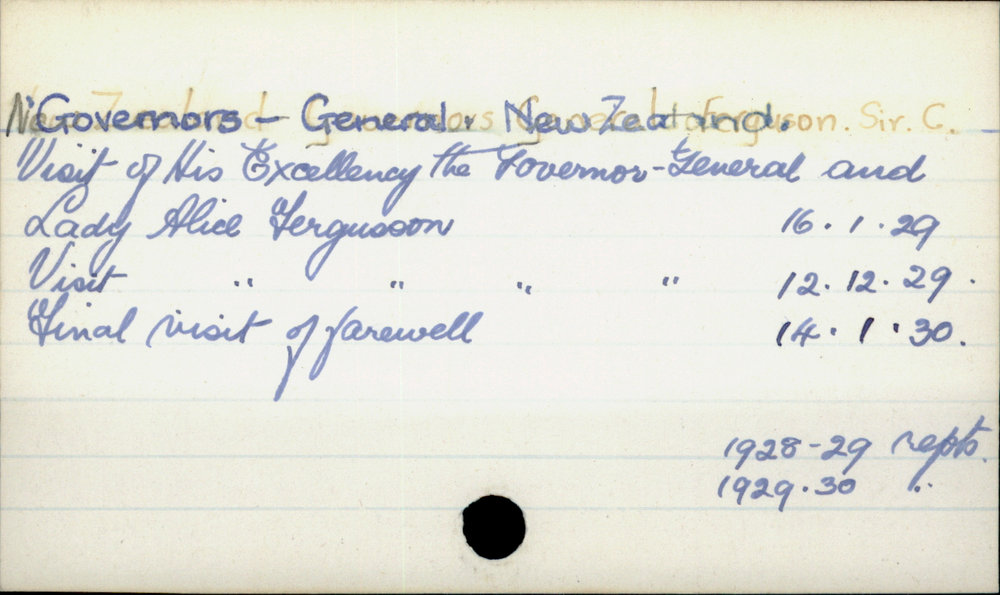 Governors - General. New Zealand.
New Zealand Governors General Ferguson. Sir. C.
Visit of His Excellency the Governor-General and
Lady Alice Fergusson 16.1.29
Visit " " " " 12.12.29.
Final visit of farewell 14.1.30.
1928-29 repts.
1929.30 "